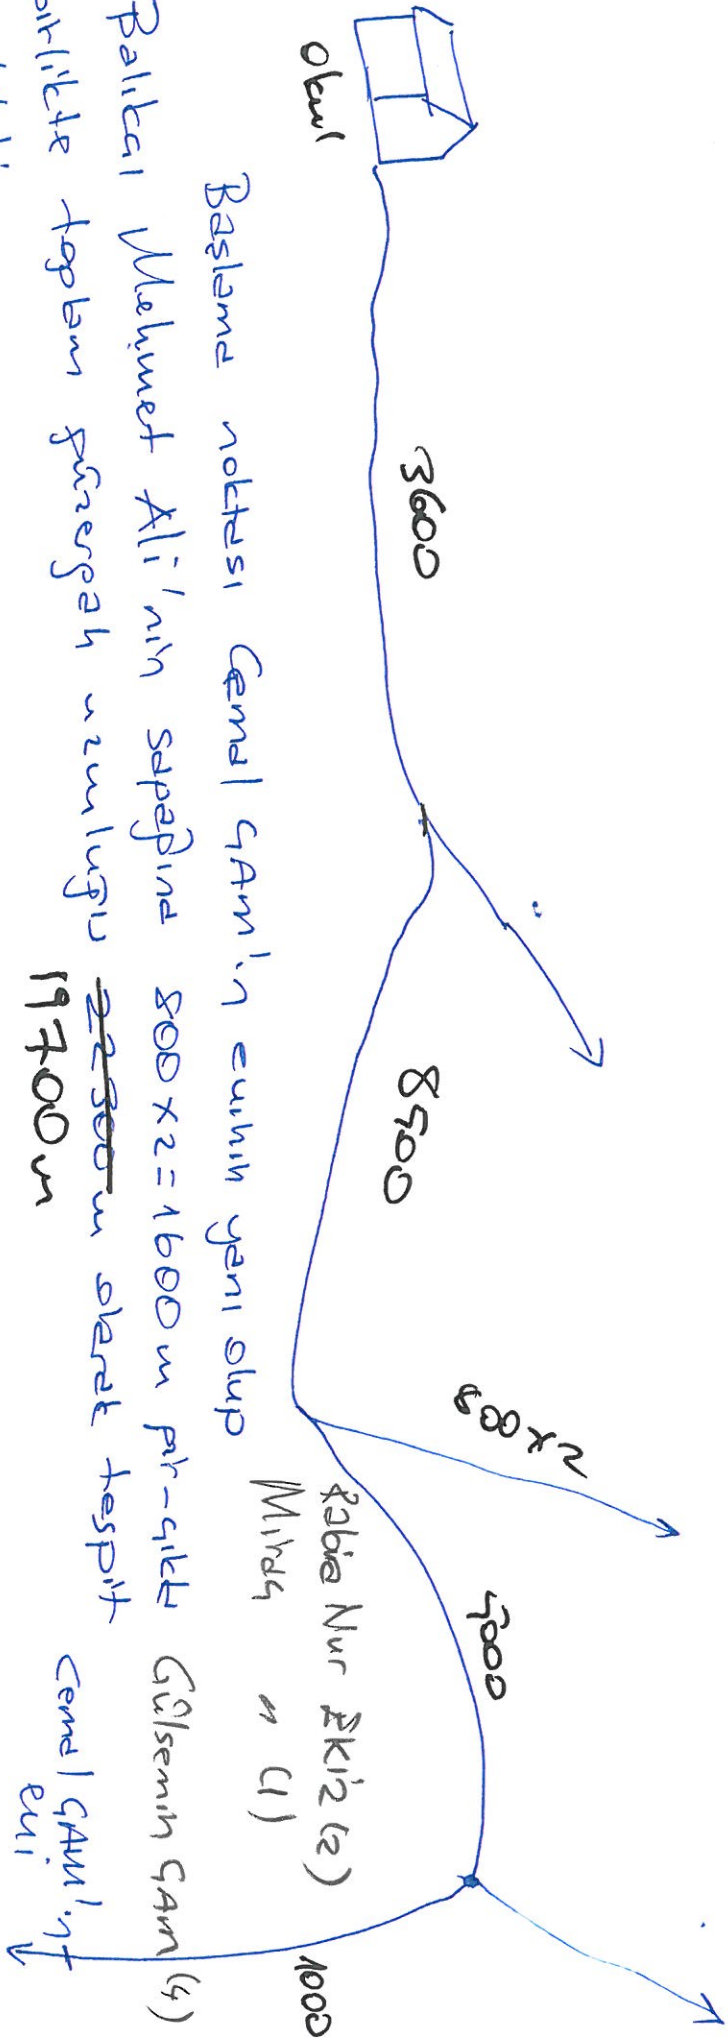 Okul
3600
8500
800x2
5000
1000
Rabia Nur EKİZ (2)
Miraç " (1)
Gülsemin ÇAM (4)
Cemal ÇAM'ın
evi
Başlama noktası Cemal ÇAM'ın evinin yanı olup
Balıkçı Mehmet Ali'nin sapağına 800x2=1600 m gir-çıktı
birlikte toplam güzergah uzunluğu 22300 m olarak tespit
19700m